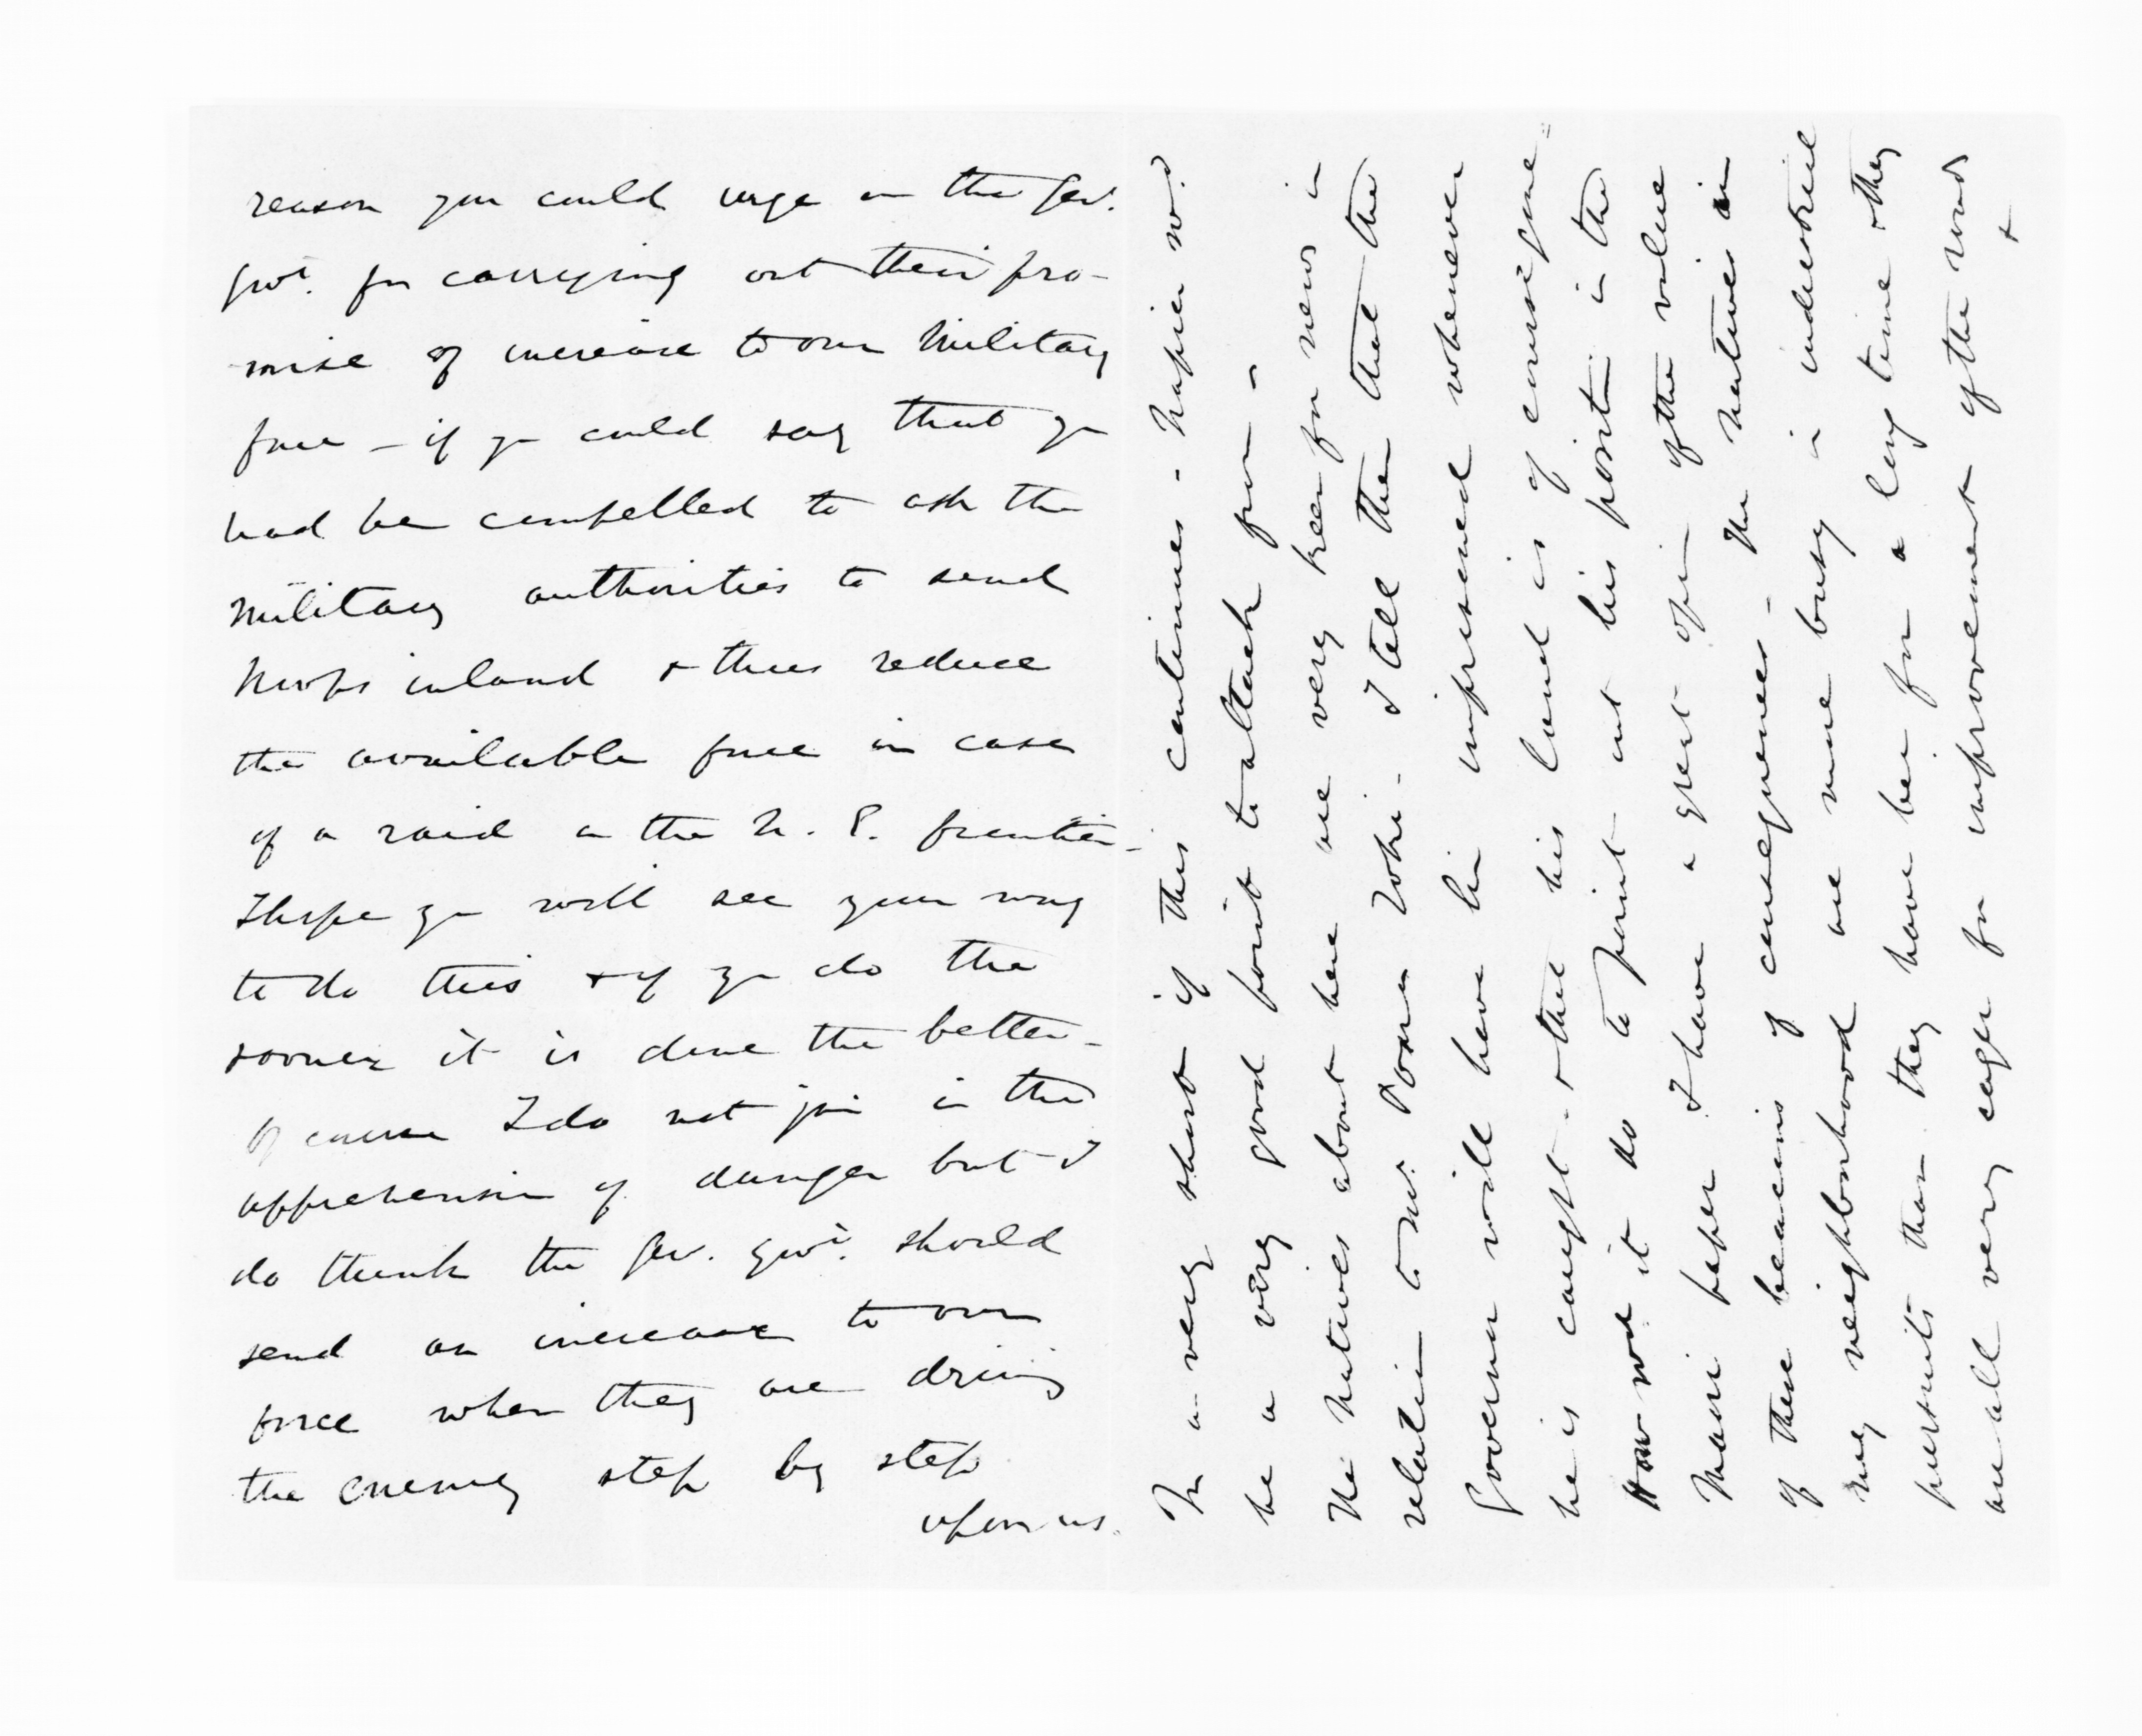 reason you could urge on the Gen.
Govt. for carrying out their pro-
mise of increase to our Military
force - if you could say that you
had been compelled to ask the
Military authorities to send
troops inland & thus reduce
the available force in case
of a raid on the N. P. frontier -
I hope you will see your way
to do this & if you do the
sooner it is done the better -
Of course I do not join in the
apprehension of danger but I
do think the Gen. Govt. should
send an increase to our
force when they are driving
the enemy step by step
upon us.
in a very short if this continues - Napier wd.
be a very good point to attack from -
The Natives about here are very keen for news in
relation to Mr. Poorn Toke - I tell them that the
Governor will have him imprisoned whenever
he is caught - & that his land is of course gone -
How wd it do to point out his position in the
Maori paper I have a great opin of the value
of these beacons of consequences - The Natives in
my neighborhood are more busy in industrial
pursuits than they have been for a long time & they
are all very eager for improvement of the roads
&